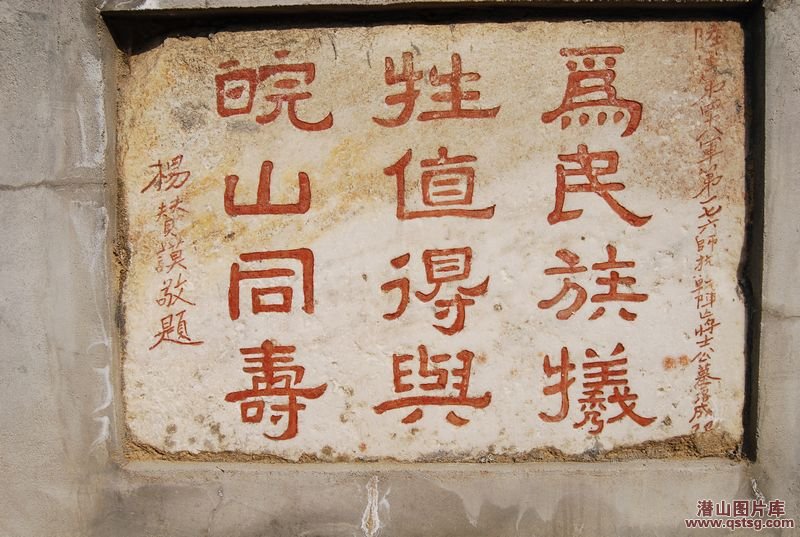 陸軍第四十八軍第一七六師抗戰陣亡將士公墓落成
爲民族犧
牲值得與
皖山同壽
楊贊謨敬題
潜山图片库
www.qstsg.com